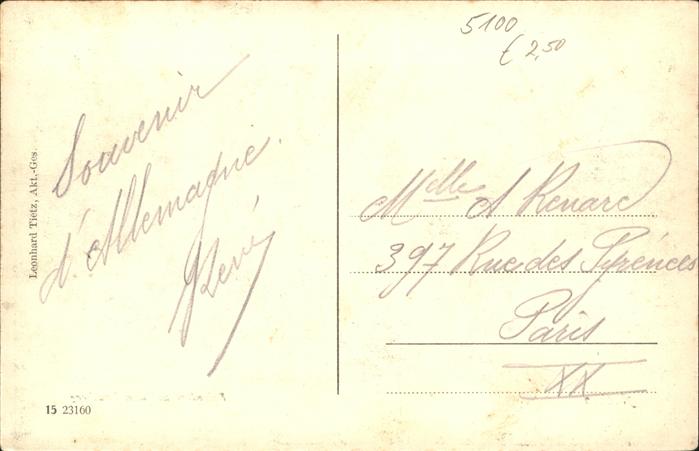 5100
€ 2,50
Souvenir
d'Allemagne.
René
Leonhard Tietz, Akt.-Ges
Melle A Renard
397 Rue des Pyrénées
Paris
XX
15 23160